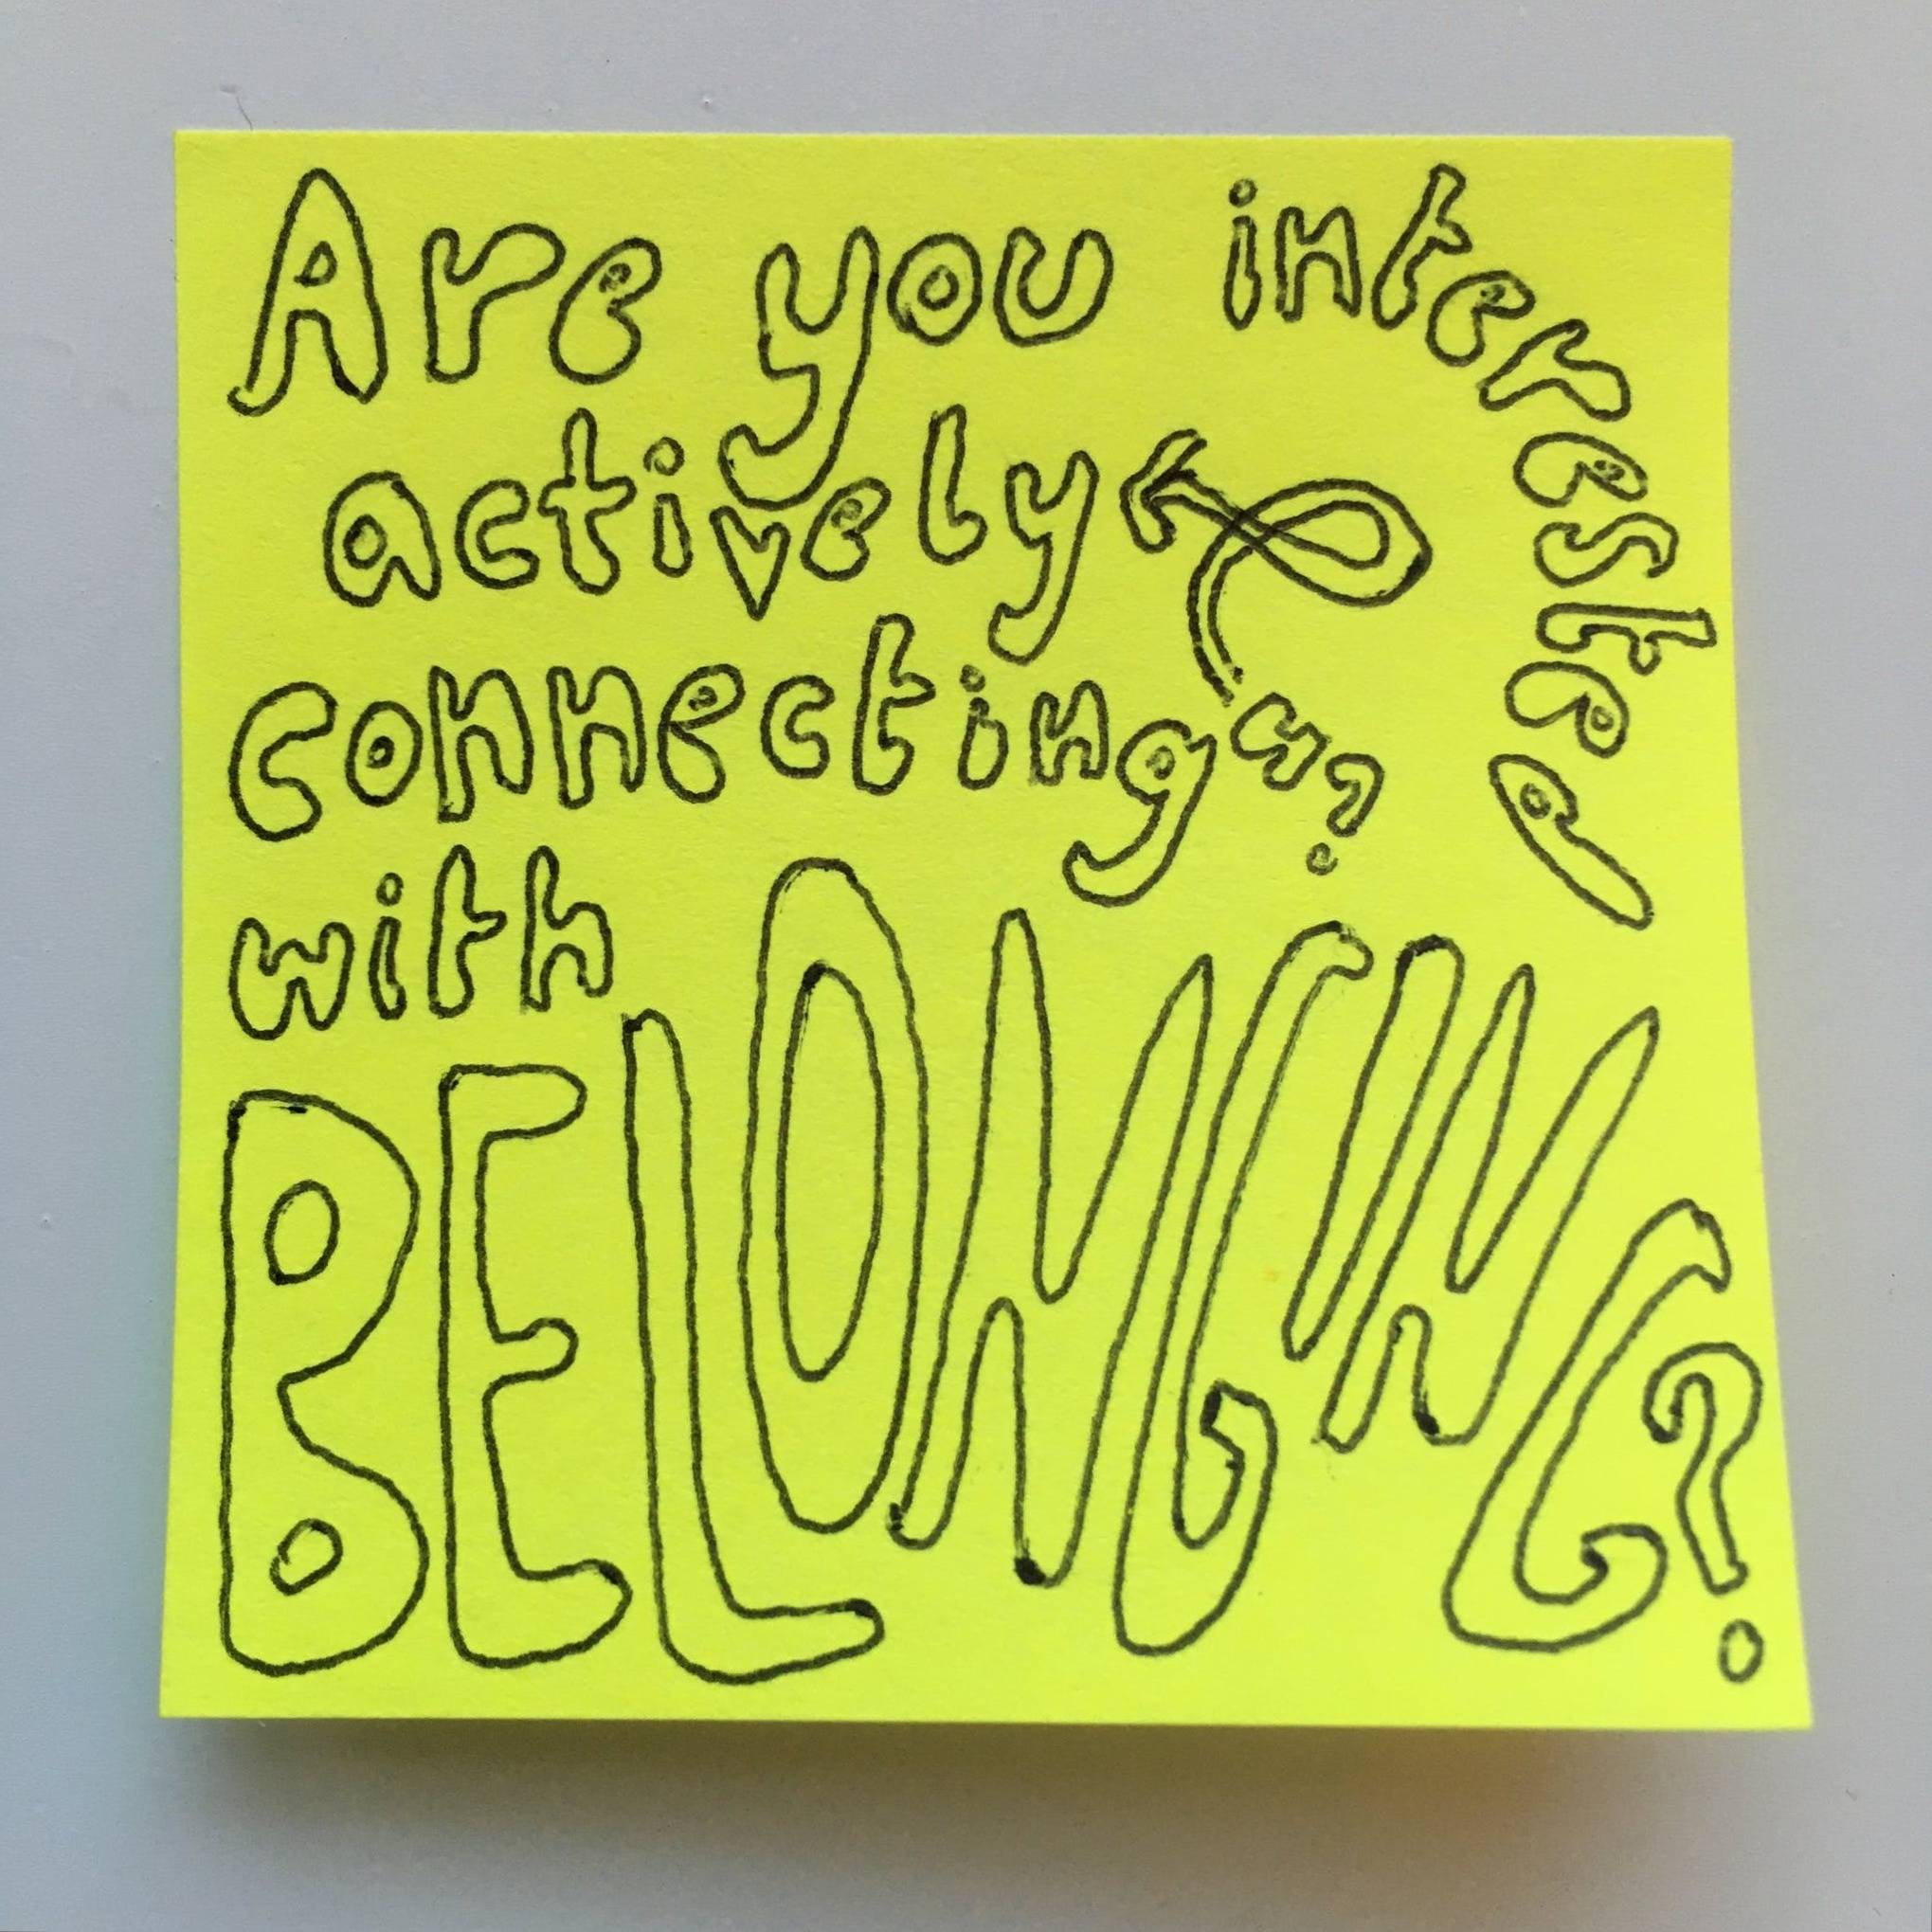 Are you interested
actively
connecting
with
BELONGING?